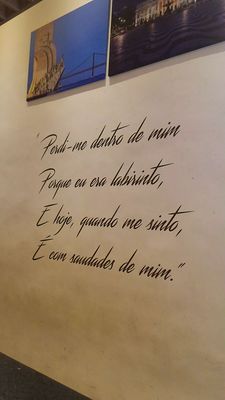 "Perdi-me dentro de mim
Porque eu era labirinto,
E hoje, quando me sinto,
É com saudades de mim."